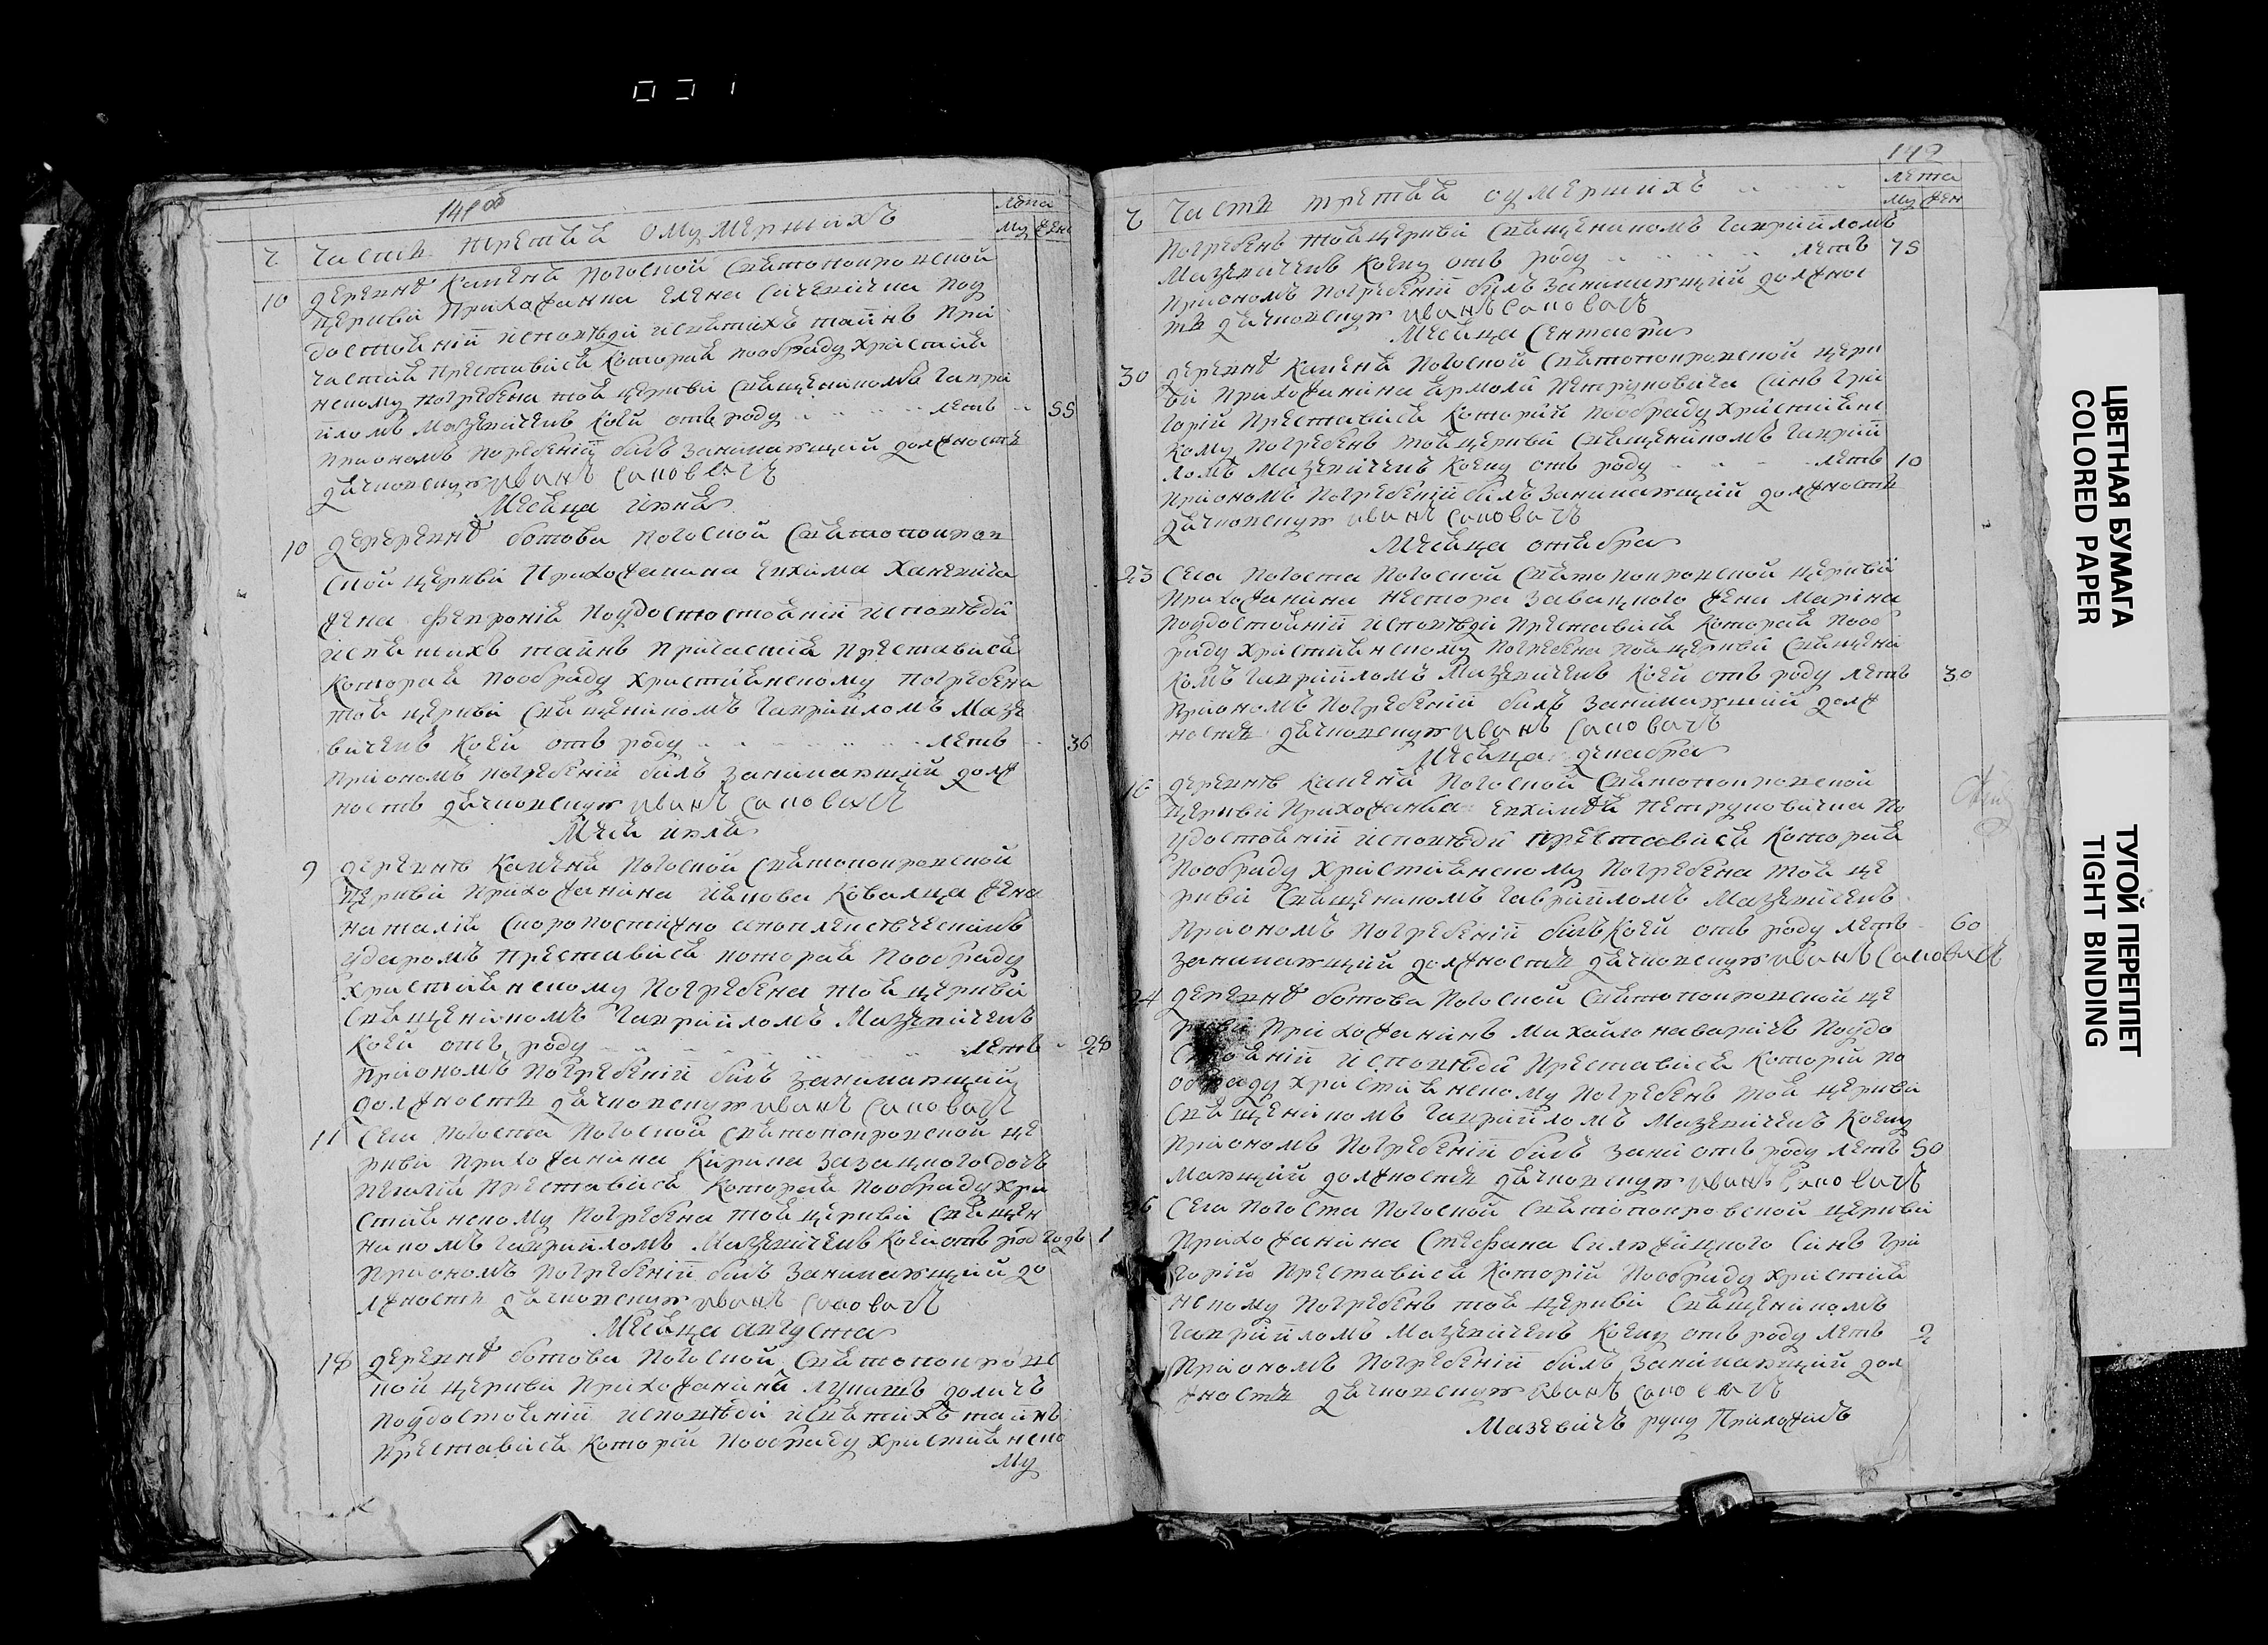 031
Часть третья о умершихъ
Лѣта
Му жен
10 деревнѣ Каменя погосной Святопокровской
церкви прихожанка Елена
честія преставися которая пообряду христия
нскому погребена той церкви священикомъ гаврі
иломъ Мазевичемъ коей отъ роду лѣтъ 55
приономъ погребеніи билъ занимающий должность
дячковскую иванъ Саповачъ
Месяца июня
10 деревнѣ ботова погосной Святопокров
ской церкви прихожанина Евхима
жена Февронія поудостостоянии исповѣди
исвятихъ таинъ причастія преставися
которая пообряду християнскому погребена
той церкви священикомъ гавриломъ Мазе
вичемъ коей отъ роду лѣтъ 36
приономъ погребеніи билъ занимающий долж
ность дячковскую иванъ Саповачъ
Меся июля
9 деревнѣ Каменя погосной Святопокровской
церкви прихожанина Якова Ковалца жена
наталія скоропостижно
ударомъ преставися которая пообряду
християнскому погребена той церкви
священикомъ гавриломъ Мазевичемъ
коей отъ роду лѣтъ 28
приономъ погребеніи билъ занимающий
должность дячковскую иванъ Саповачъ
11 Села погоста погосной святопокровской це
ркви прихожанина Кирила дочь
преставися которая пообряду хри
стиянскому погребена той церкви священ
никомъ гавриломъ Мазевичемъ коей отъ род годъ 1
приономъ погребеніи билъ занимающий до
лжность дячковскую иванъ Саповачъ
Месяца августа
18 деревнѣ ботова погосной Святопокровс
кой церкви прихожанинъ лукашъ
поудостоянии исповѣди исвятихъ таинъ
преставися которій пообряду християнско
му
149
Часть третья о умершихъ
Лѣта
Му жен
погребенъ той церкви священикомъ гавриломъ
Мазевичемъ коему отъ роду лѣтъ 75
приономъ погребеніи билъ занимающий должнос
ть дячковскую иванъ Саповачъ
Месяца Сентабра
30 деревнѣ Каменя погосной Святопокровской церк
ви прихожанина ярмоли Петруковича синъ гри
горій преставися которій пообряду християнс
кому погребенъ той церкви священикомъ гаврии
ломъ Мазевичемъ коему отъ роду лѣтъ 10
приономъ погребеніи билъ занимающий должность
дячковскую иванъ Саповачъ
Месяца октабра
23 Села погоста погосной святопокровской церкви
прихожанина нестора жена Марина
поудостояніи исповѣди преставися которая пооб
ряду християнскому погребена той церкви священи
комъ гавриломъ Мазевичемъ коей отъ роду лѣтъ 30
приономъ погребеніи билъ занимающий долж
ность дячковскую иванъ Саповачъ
Месяца декабра
16 деревнѣ Каменя погосной Святопокровской
церкви прихожанка Петруковична по
удостоянии исповѣди преставися которая
пообряду християнскому погребена той це
ркви священикомъ гавриломъ Мазевичемъ
приономъ погребеніи билъ коей отъ роду лѣтъ 60
занимающий должность дячковскую иванъ Саповачъ
24 деревнѣ ботова погосной Святопокровской це
ркви прихожанинъ Михайло поудо
стоянии исповѣди преставися которій по
обряду християнскому погребенъ той церкви
священикомъ гавриломъ Мазевичемъ коему
приономъ погребеніи билъ зани отъ роду лѣтъ 50
мающий должность дячковскую иванъ Саповачъ
26 Села погоста погосной Святопокровской церкви
прихожанина Стефана синъ гри
горій преставися которій пообряду христия
нскому погребенъ той церкви священикомъ
гавриломъ Мазевичемъ коему отъ роду лѣтъ 2
приономъ погребеніи билъ занимающий дол
жность дячковскую иванъ Саповачъ
Мазевичъ руку Приложилъ
ЦВЕТНАЯ БУМАГА
COLORED PAPER
ТУГОЙ ПЕРЕПЛЕТ
TIGHT BINDING